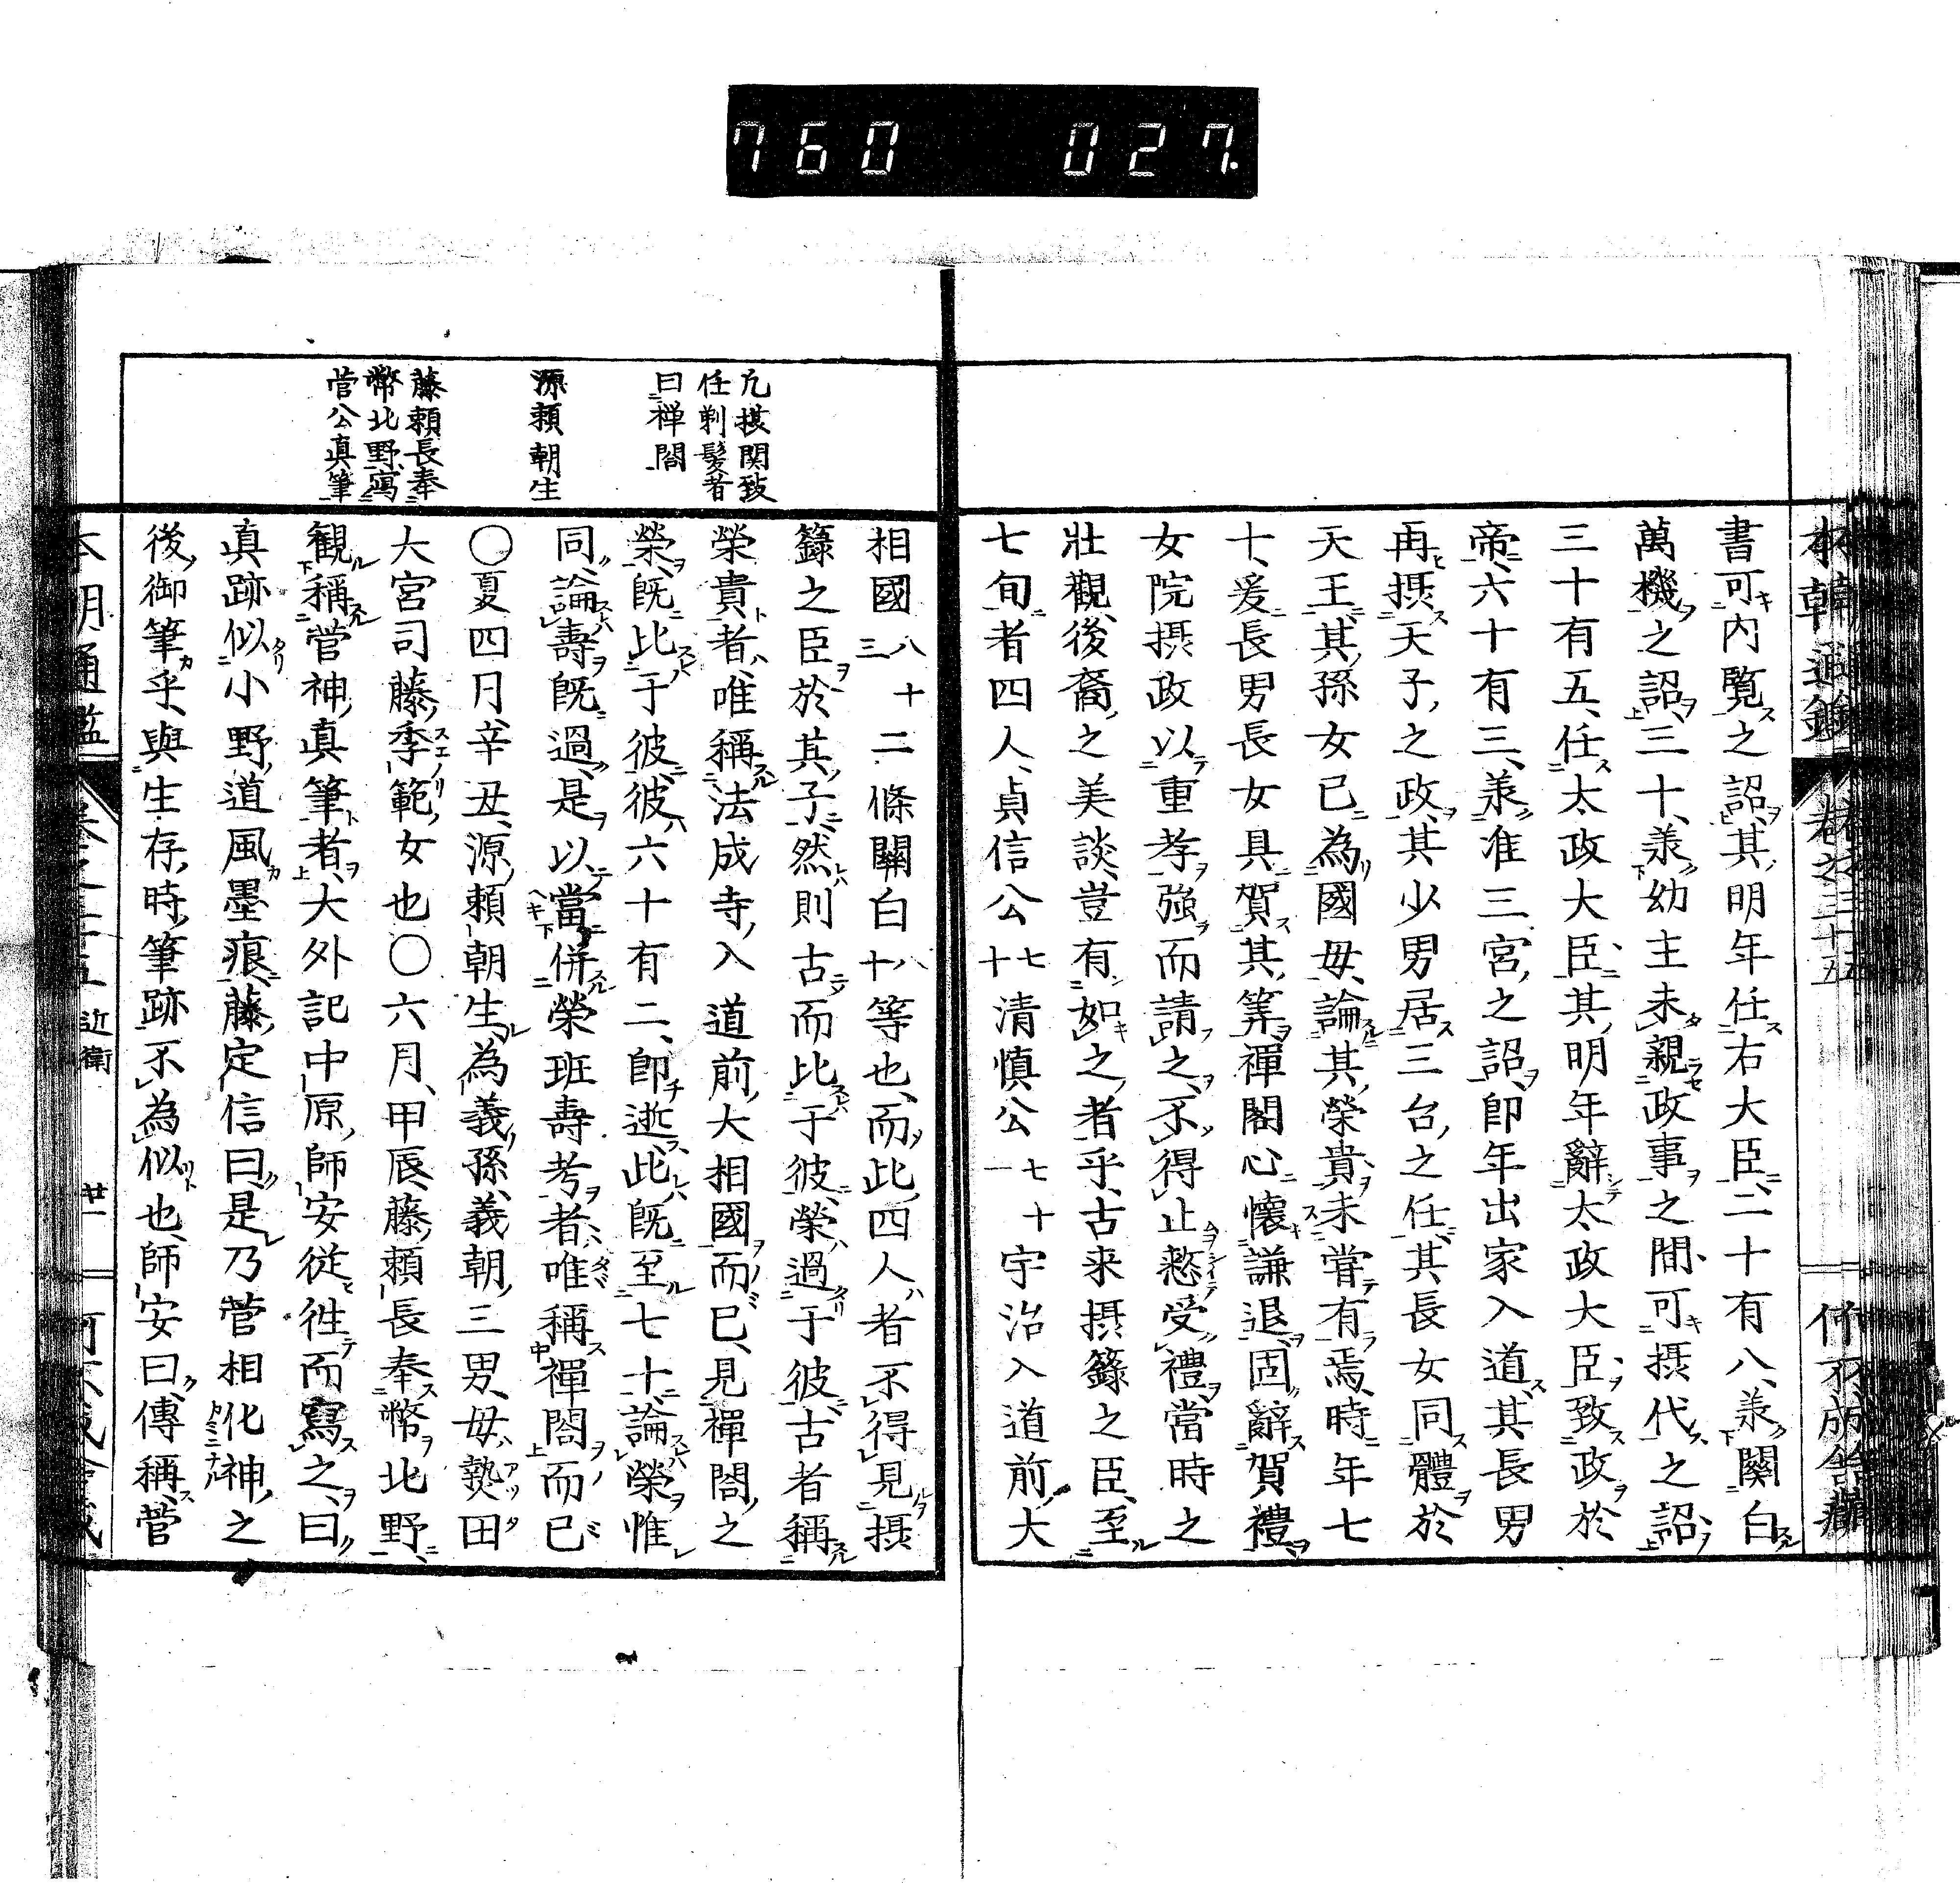 760 027.
書可內覽之詔其明年任右大臣二十有八兼關白
萬機之詔三十兼幼主未親政事之間可摂代之詔
三十有五任太政大臣其明年辭太政大臣致政於
帝六十有三兼准三宮之詔即年出家入道其長男
再摂天子之政其少男居三台之任其長女同體於
天王其孫女已為國母論其榮貴未嘗有焉時年七
十爰長男長女具賀其筭禪閤心懷謙退固辭賀禮
女院摂政以重孝強而請之不得止愁受禮當時之
壯觀後裔之美談豈有如之者乎古来摂籙之臣至
七旬者四人貞信公七十清慎公七十一宇治入道前大
凡摂関致
任剃髪者
曰禅閤
源頼朝生
藤頼長奉
幣北野寫
菅公真筆
相國八十三二條關白八十等也而此四人者不得見摂
籙之臣於其子然則古而比于彼榮過于彼古者稱
榮貴者唯稱法成寺入道前大相國而已見禪閤之
榮既比于彼彼六十有二即逝此既至七十論榮惟
同論壽既過是以當併榮班壽考者唯稱禪閤而已
〇夏四月辛丑源頼朝生為義孫義朝三男母熱田
大宮司藤季範女也〇六月甲辰藤頼長奉幣北野
観稱菅神真筆者大外記中原師安従徃而寫之曰
真跡似小野道風墨痕藤定信曰是乃菅相化神之
後御筆乎與生存時筆跡不為似也師安曰傳稱菅
近衛
廿一